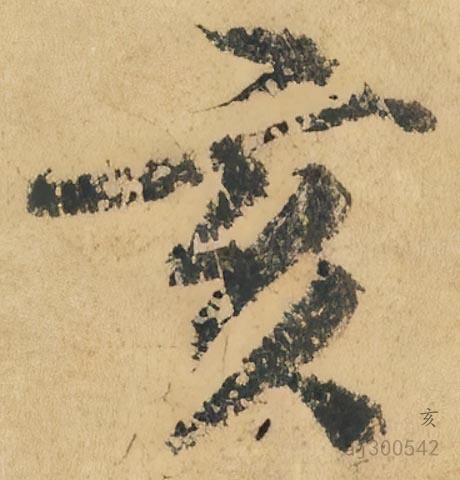 亥
亥
aj300542